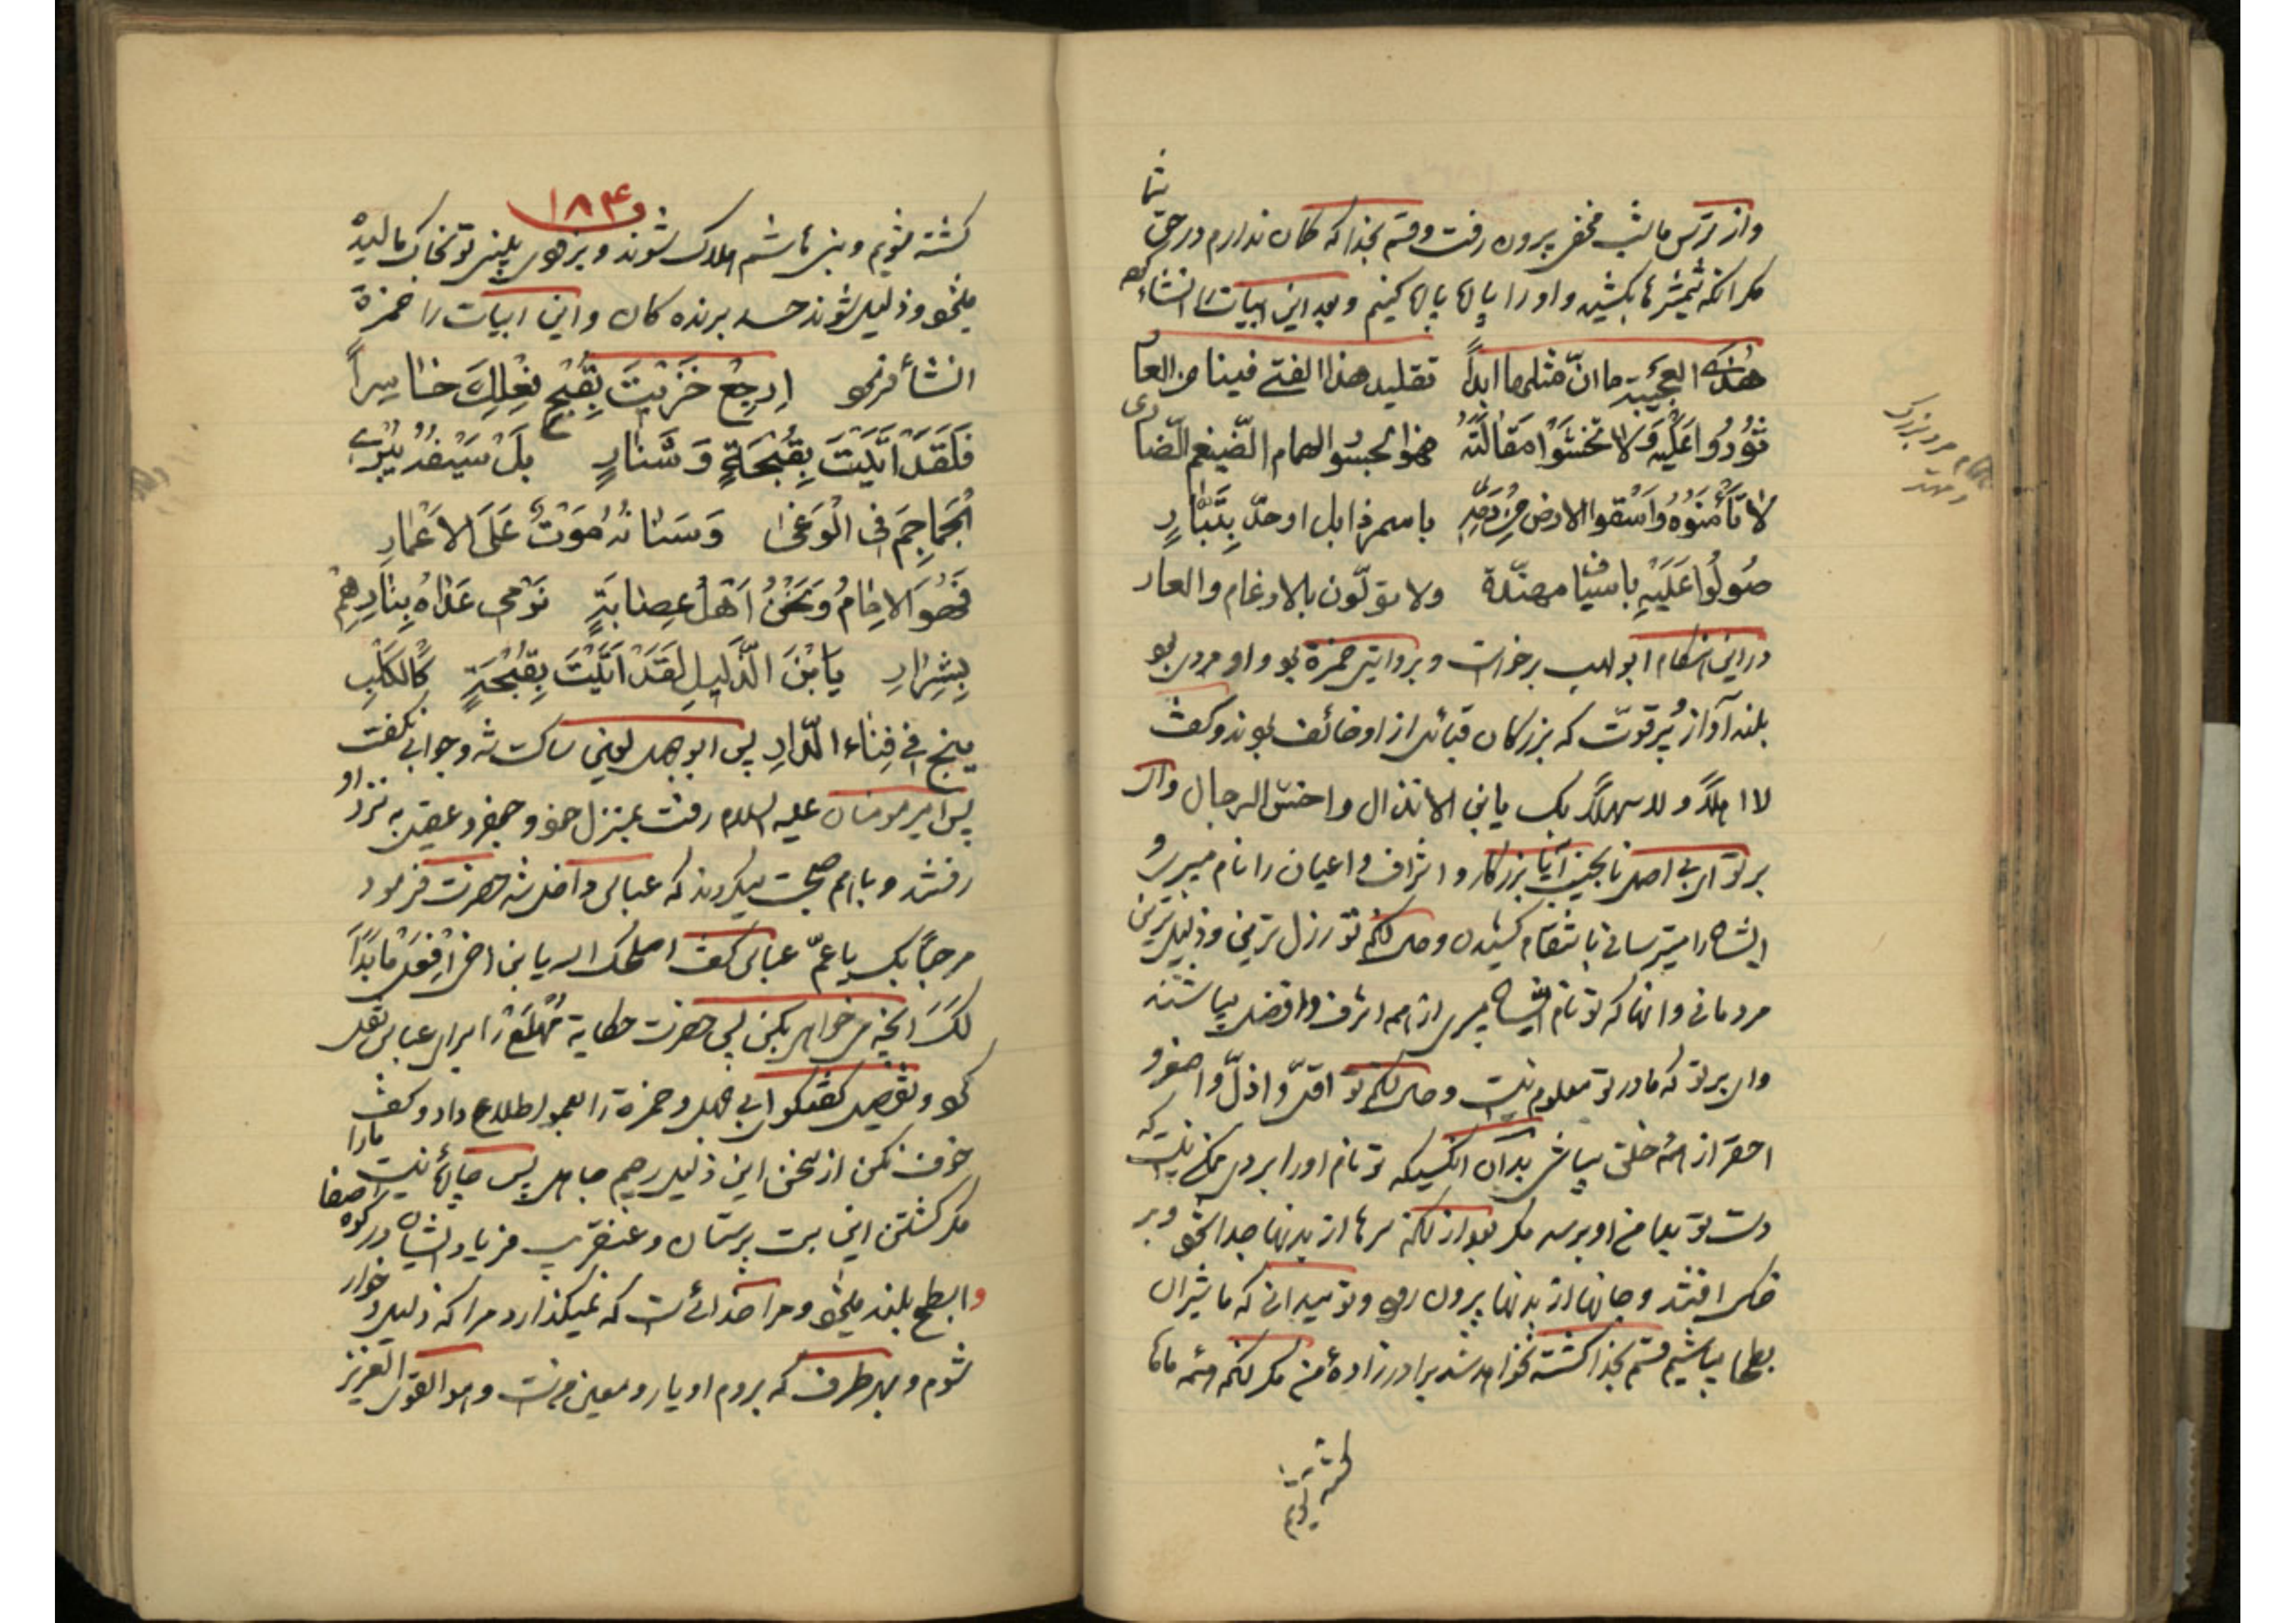 واز ترس ما لشب مخفی بیرون رفت وقسم بخدا که کمان ندارم در حق شما
مکر انکه شمشیرها بکشید واورا پاره پاره کنیم وبعد این ابیات را انشاء کرد
هذی العجیبة ما انّ مثلها ابداً تقلید هذا الفتی فینا من العار
ثُوروا عَلَیْهِ وَلا تَخْشَوْا مَقَالَتَهُ فهو الهمام الضیغم الضاری
لا تَأْمَنُوهُ وَاَسْقُوا الارض مِنْ دَمِهِ باسمر ذابل اوحدّ بتّار
صُولُوا عَلَیْهِ باسیاف مهنّدة ولا تولّون بالارغام والعار
دراین هنکام ابولهب برخواست وبروایتی حمزة بود واو مردی بود
بلند آواز پُر قوّت که بزرکان قبائل از او خائف بودند وکفت
لا اهلاً ولا سهلاً بک یا بن الانذال واخس الرجال وای
بر تو ای بی اصل نانجیب آیا بزرکان واشراف واعیان را نام میبری و
ایشان را میترسانی بانتقام کشیدن وحال انکه تو رذل ترین وذلیل ترین
مردمانی وانها که تو نام ایشان میبری از همه اشرف وافضل میباشند
وای بر تو که مادر تو معلوم نیست وحال انکه تو اقلّ واذلّ واصغر و
احقر از همه خلق میباشی بدان انکسیکه تو نام اورا بردی ممکن نیست که
دست تو بدامن او برسد مکر بعد از انکه سرها از بدنها جدا شود وبر
خاک افتند وجانها از بدنها بیرون رود وتو میدانی که ما شیران
بطحا میباشیم قسم بخدا کشته نخواهد شد برادر زادهٔ من مکر انکه همه ماها
کشته شویم
همام مرد بزرک
و مهتر
۱۸۴
کشته شویم وبنی هاشم هلاک شوند وبزودی بینی تو بخاک مالیده
میشود وذلیل شوند حسد برنده کان واین ابیات را حمزة
انشاء فرمود اِرجِعْ خَزَیْتَ بِقُبْحِ فِعْلِكَ خاسِراً
فَلَقَدْ اَتَیْتَ بِقُبْحَةٍ وَشَنارٍ بَلْ سَیْفُهُ یُبْرِی
الْجَماجِمَ فِی الْوَغی وَسَنانُهُ مَوْتٌ عَلَی الاَعْمارِ
فَهُوَ الاِمامُ وَنَحْنُ اَهْلُ عِصابَةٍ نَرْمی عَداهُ بِنارِهِمْ
بِشِرارِ یَا بْنَ الذَّلیلِ لَقَدْ اَتَیْتَ بِقُبْحَةٍ کَالکَلْبِ
ینبح فی فِناءِ الدّارِ پس ابوجهل لعین ساکت شد وجوابی نکفت
پس امیر مومنان علیه السلام رفت بمنزل خود وجعفر وعقیل به نزد او
رفتند وباهم صحبت میکردند که عباس داخل شد حضرت فرمود
مرحباً بک یا عمّ عباس کفت اهلک اله یا بن اخی اِفْعَلْ مَا بَدَا
لَکَ انچه میخواهی بکن پس حضرت حکایة مُهَلَّع را برای عباس نقل
کرد وتفصیل کفتکوی ابی جهل وحمزة را بعمو اطلاع داد وکفت
خوف نکن از سخن این ذلیل رجیم جاهل پس چارهٔ نیست مارا
مکر کشتن این بت پرستان وعنقریب فریاد ایشان در کوه صفا
وابطح بلند میشود ومرا خدائی است که نمیکذارد مراکه ذلیل وخوار
شوم وبهر طرف که بروم او یار ومعین من است وهو القوی العزیز